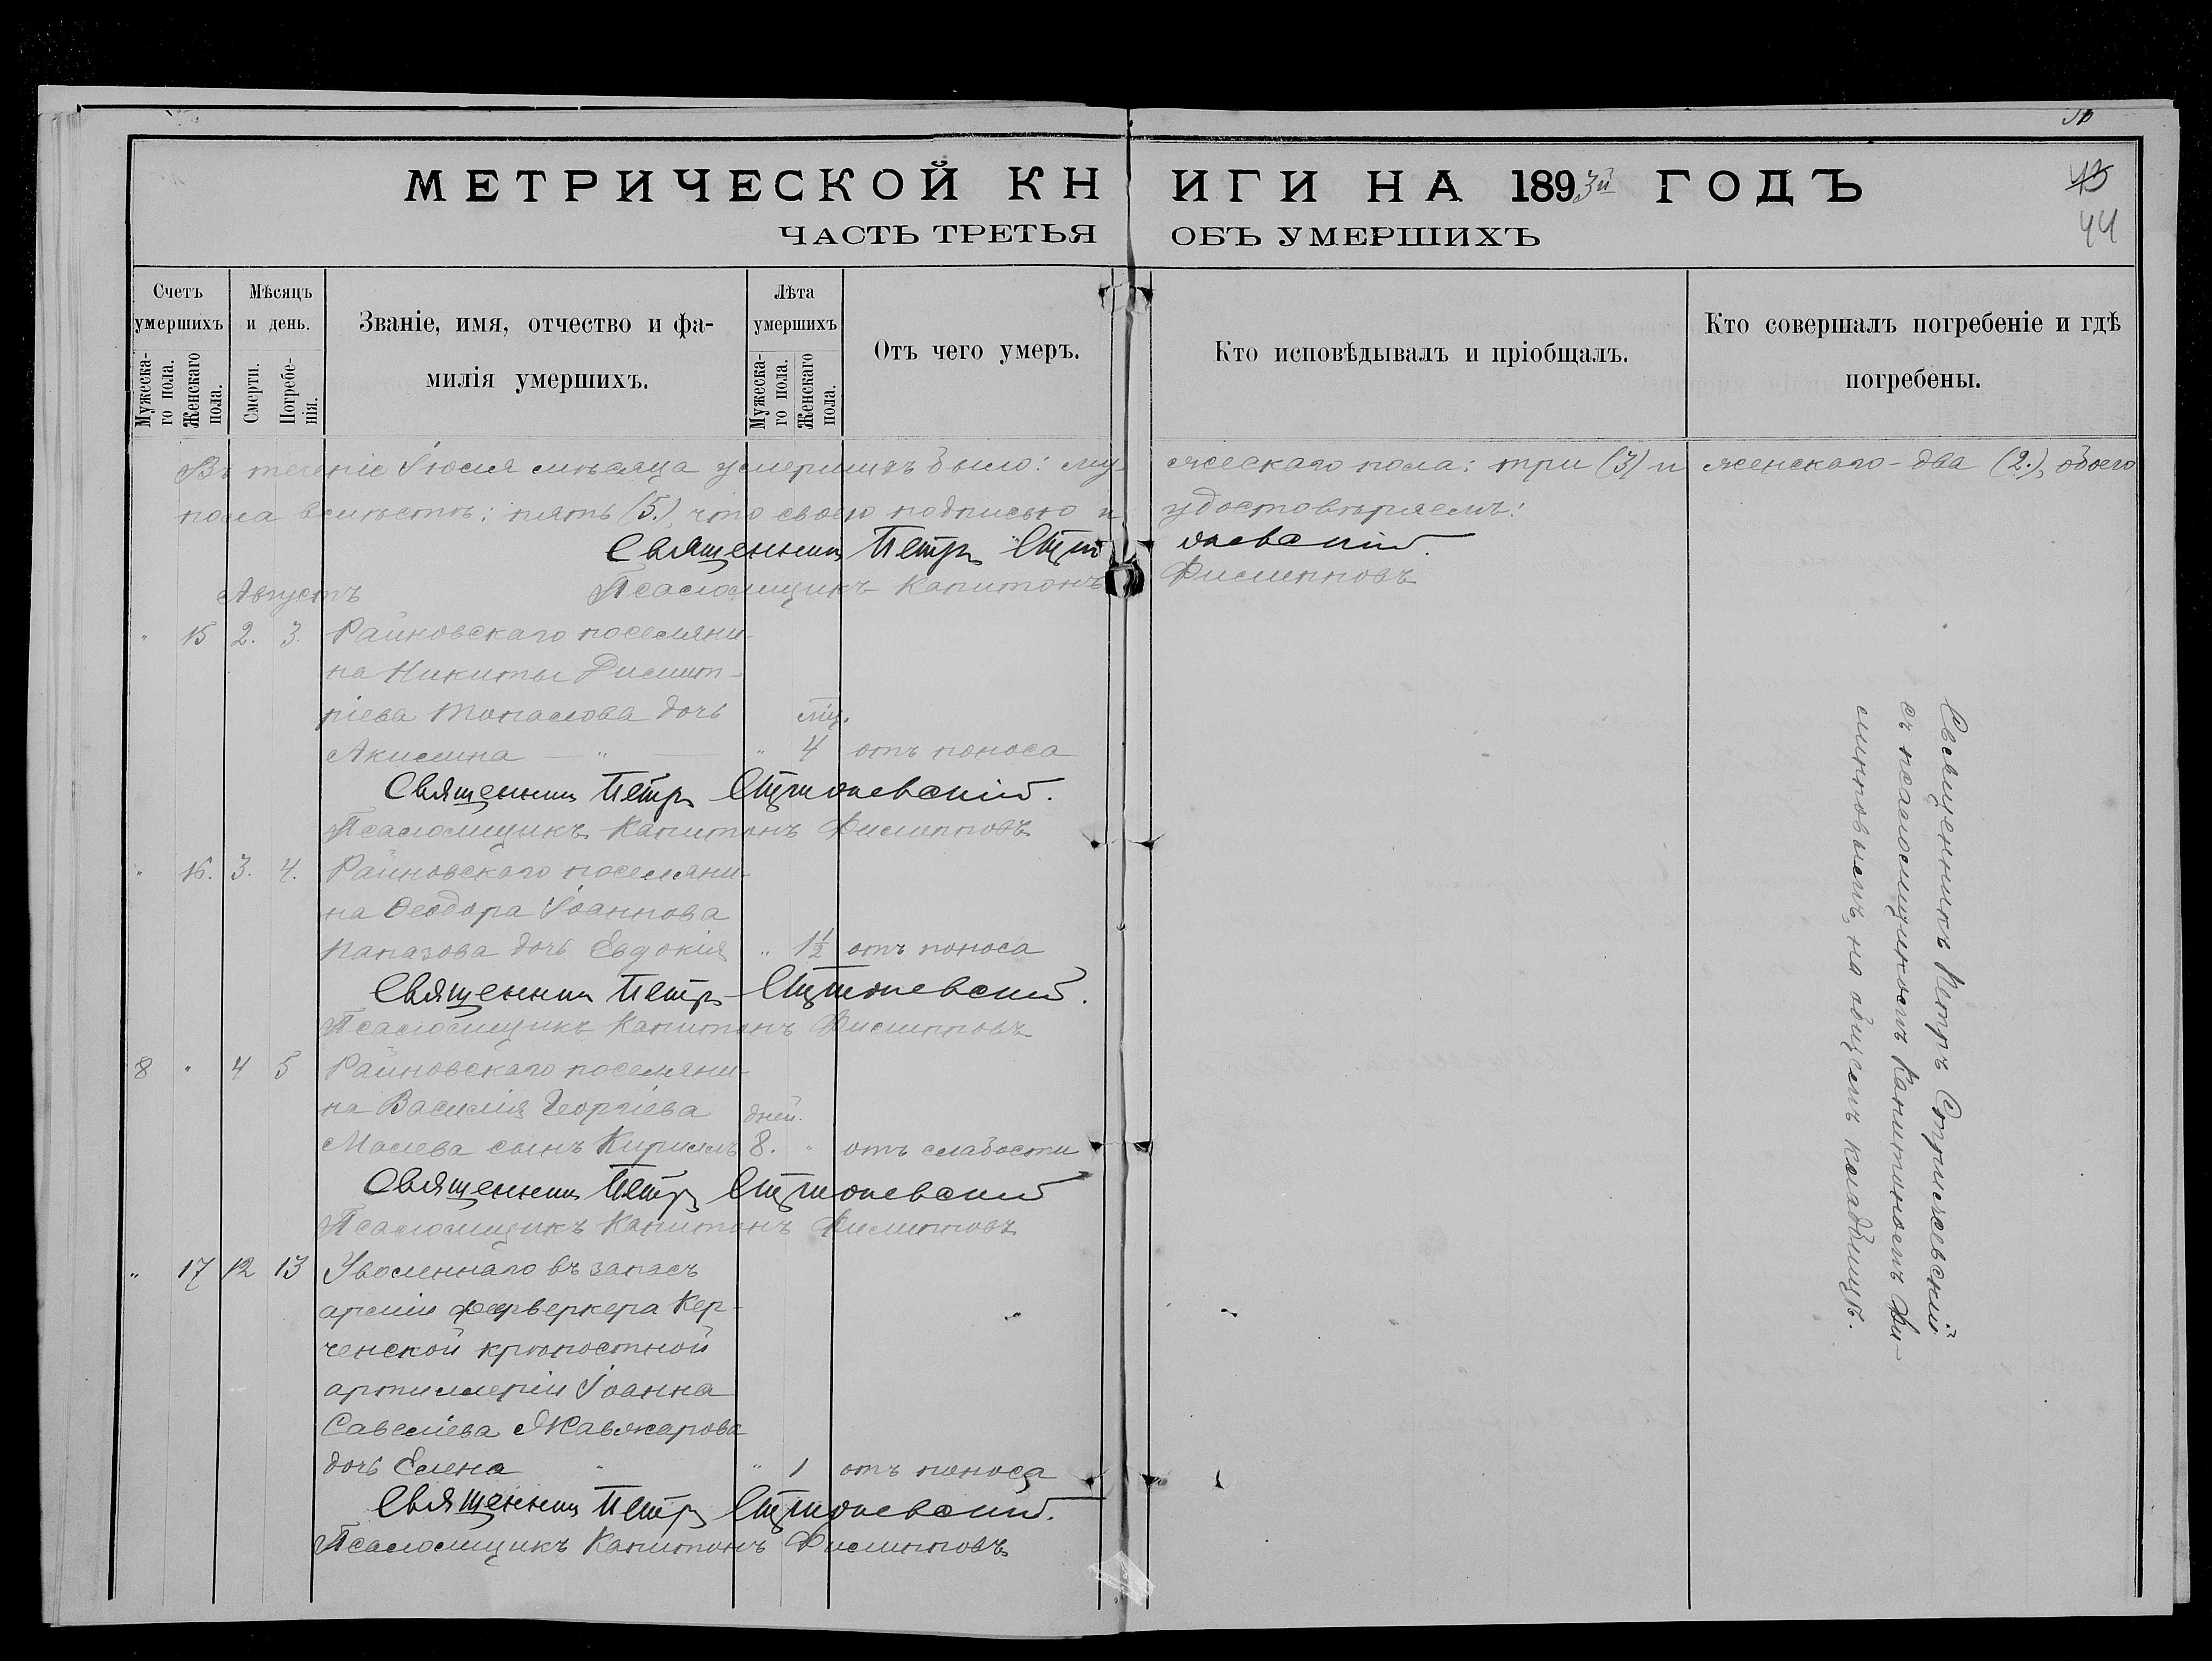 МЕТРИЧЕСКОЙ КНИГИ НА 1893й ГОДЪ
43
44
ЧАСТЬ ТРЕТЬЯ ОБЪ УМЕРШИХЪ
Счетъ умершихъ
Мужеска-го пола.
Женскаго пола.
Мѣсяцъ и день.
Смерти.
Погребе-нія.
Званіе, имя, отчество и фа-
милія умершихъ.
Лѣта умершихъ
Мужеска-го пола.
Женскаго пола.
Отъ чего умеръ.
Кто исповѣдывалъ и пріобщалъ.
Кто совершалъ погребеніе и гдѣ
погребены.
Въ теченіе Іюля мѣсяца умершихъ было: мужескаго пола: три (3) и женскаго - два (2.), обоего
пола вмѣстѣ: пять (5.), что своею подписью и удостовѣряемъ:
Священникъ Петръ
Августъ Псаломщикъ Капитонъ Филипповъ
" 15 2. 3. Райновскаго поселяни-
на Никиты Димит-
ріева Топалова дочь мц.
Акилина — " — " 4 отъ поноса
Священникъ Петръ
Псаломщикъ Капитонъ Филипповъ
" 16. 3. 4. Райновскаго поселяни-
на Ѳеодора Іоаннова
Папазова дочь Евдокія " 1½ отъ поноса
Священникъ Петръ
Псаломщикъ Капитонъ Филипповъ
8 " 4 5 Райновскаго поселяни-
на Василія Георгіева дней.
сынъ Кириллъ 8. " отъ слабости
Священникъ Петръ
Псаломщикъ Капитонъ Филипповъ
" 17 12 13 Уволеннаго въ запасъ
арміи фейерверкера Кер-
ченской крѣпостной
артиллеріи Іоанна
Савеліева Жавжарова
дочь Елена " " 1 отъ поноса
Священникъ Петръ
Псаломщикъ Капитонъ Филипповъ
Священникъ Петръ
съ псаломщикомъ Капитономъ Фи-
липповымъ, на общемъ кладбищѣ.